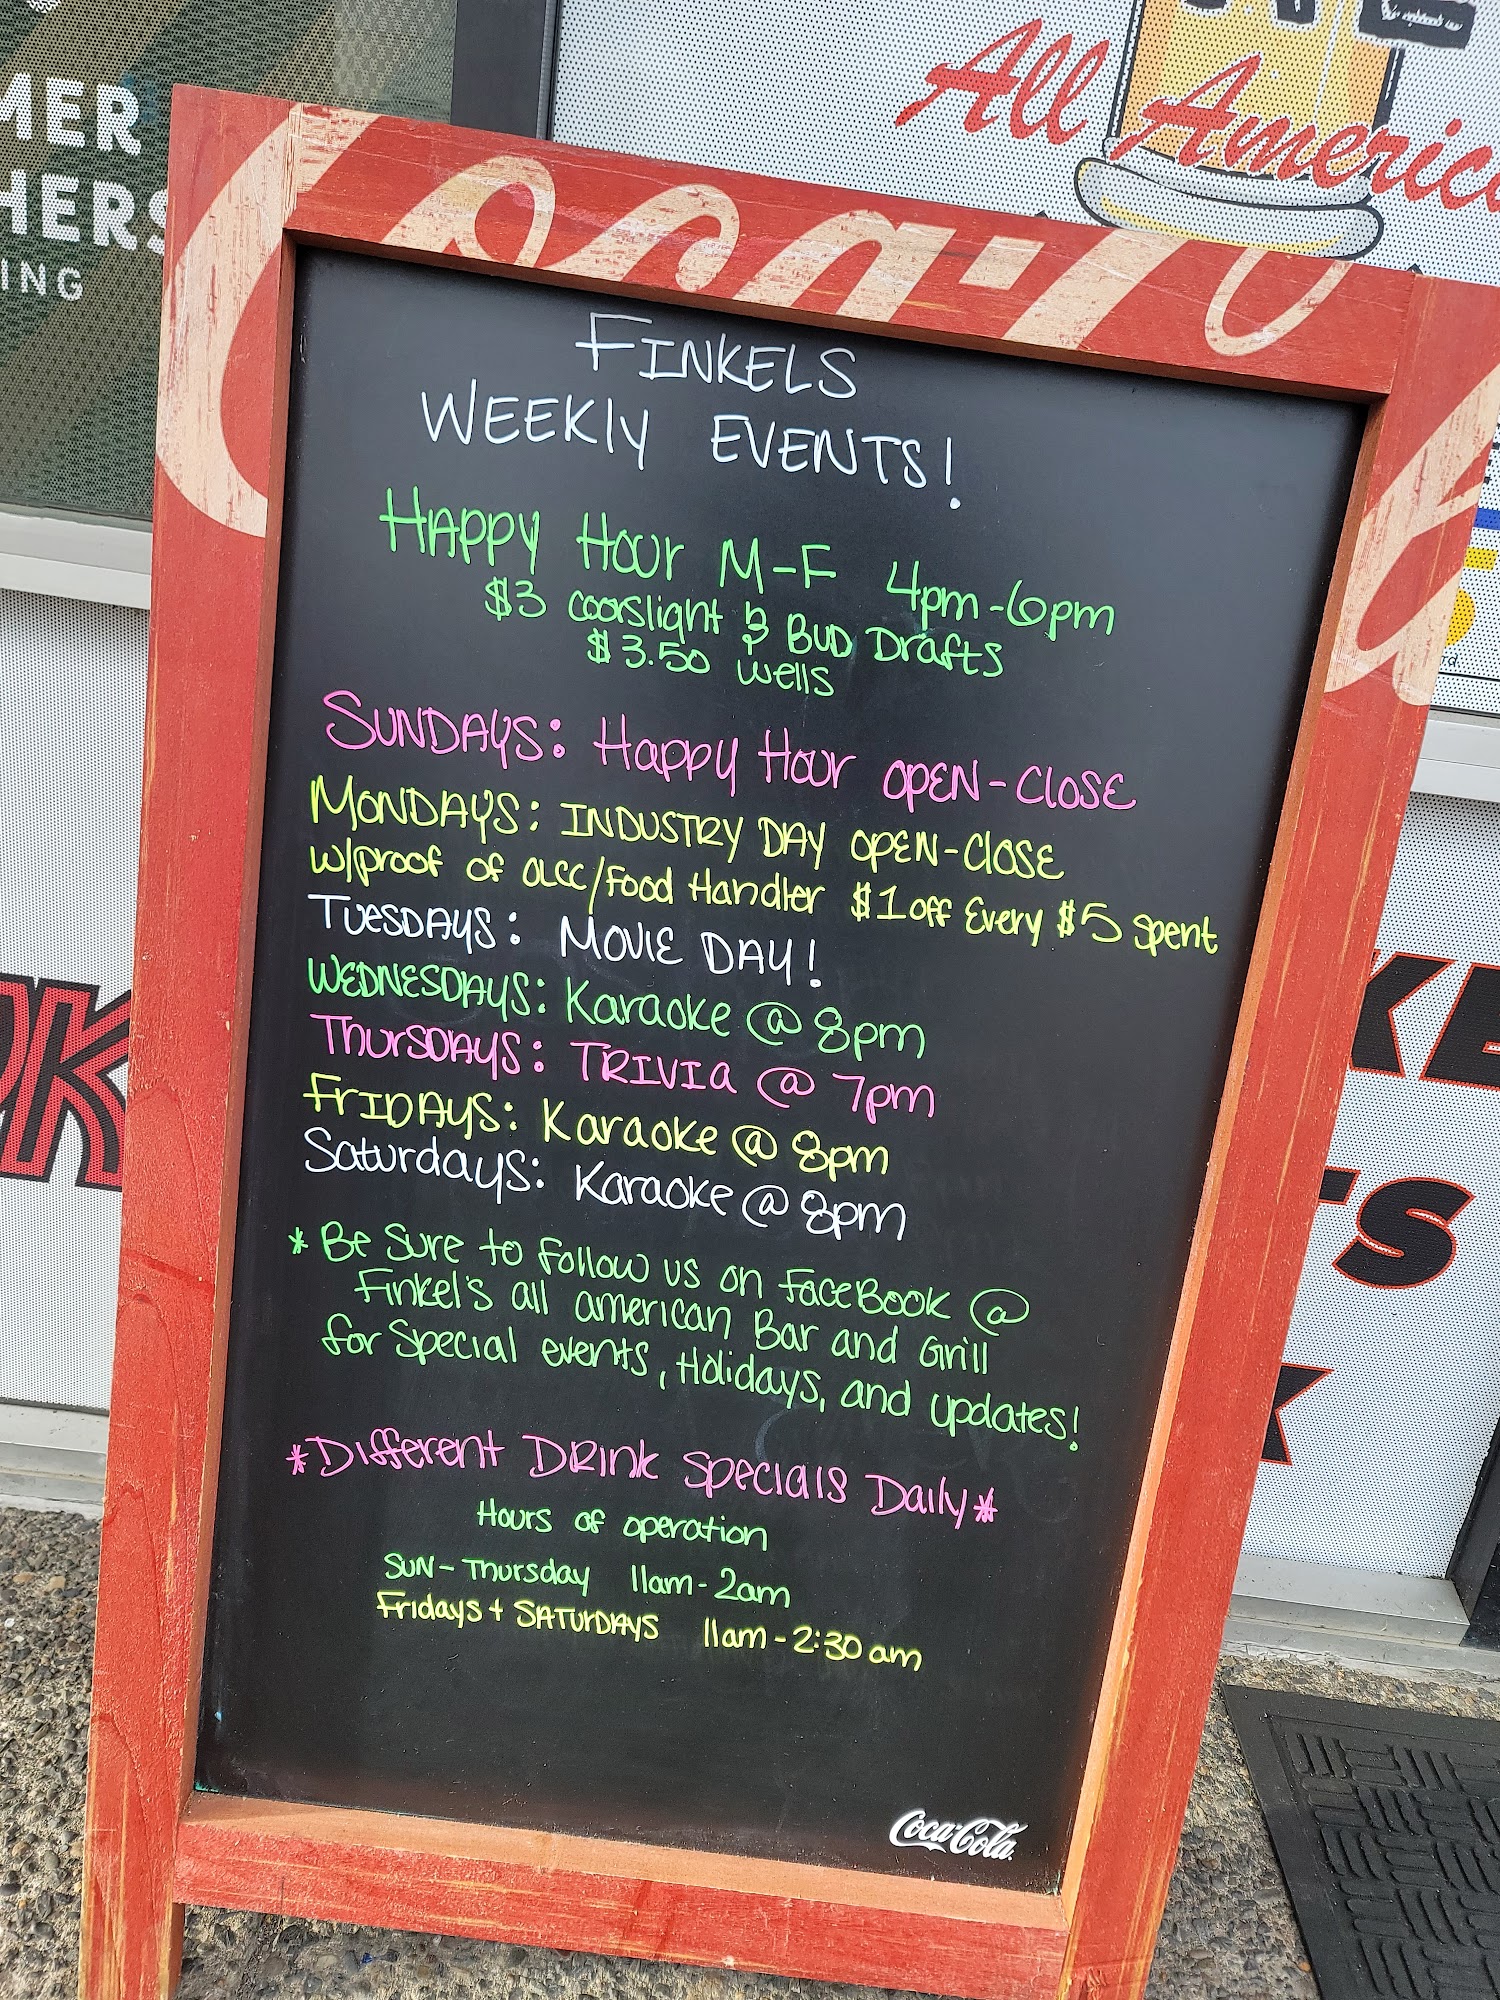 MER
HERS
ING
All American
Coca-Co
FINKELS
WEEKLY EVENTS!
HAPPY HOUR M-F 4pm-6pm
$3 coorslight & BUD Drafts
$3.50 wells
SUNDAYS: Happy Hour OPEN-CLOSE
MONDAYS: INDUSTRY DAY OPEN-ClOSE
w/proof of OLCC/Food Handler $1 off Every $5 spent
TUESDAYS: MOVIE DAY!
WEDNESDAYS: Karaoke @ 8pm
THURSDAYS: TRIVIA @ 7pm
FRIDAYS: Karaoke @ 8pm
Saturdays: Karaoke @ 8pm
* Be Sure to follow us on FaceBook @
Finkel's all american Bar and Grill
for Special events, Holidays, and updates!
*Different DRINK Specials Daily*
Hours of operation
SUN - Thursday 11am - 2am
Fridays + SATURDAYS 11am - 2:30 am
Coca-Cola